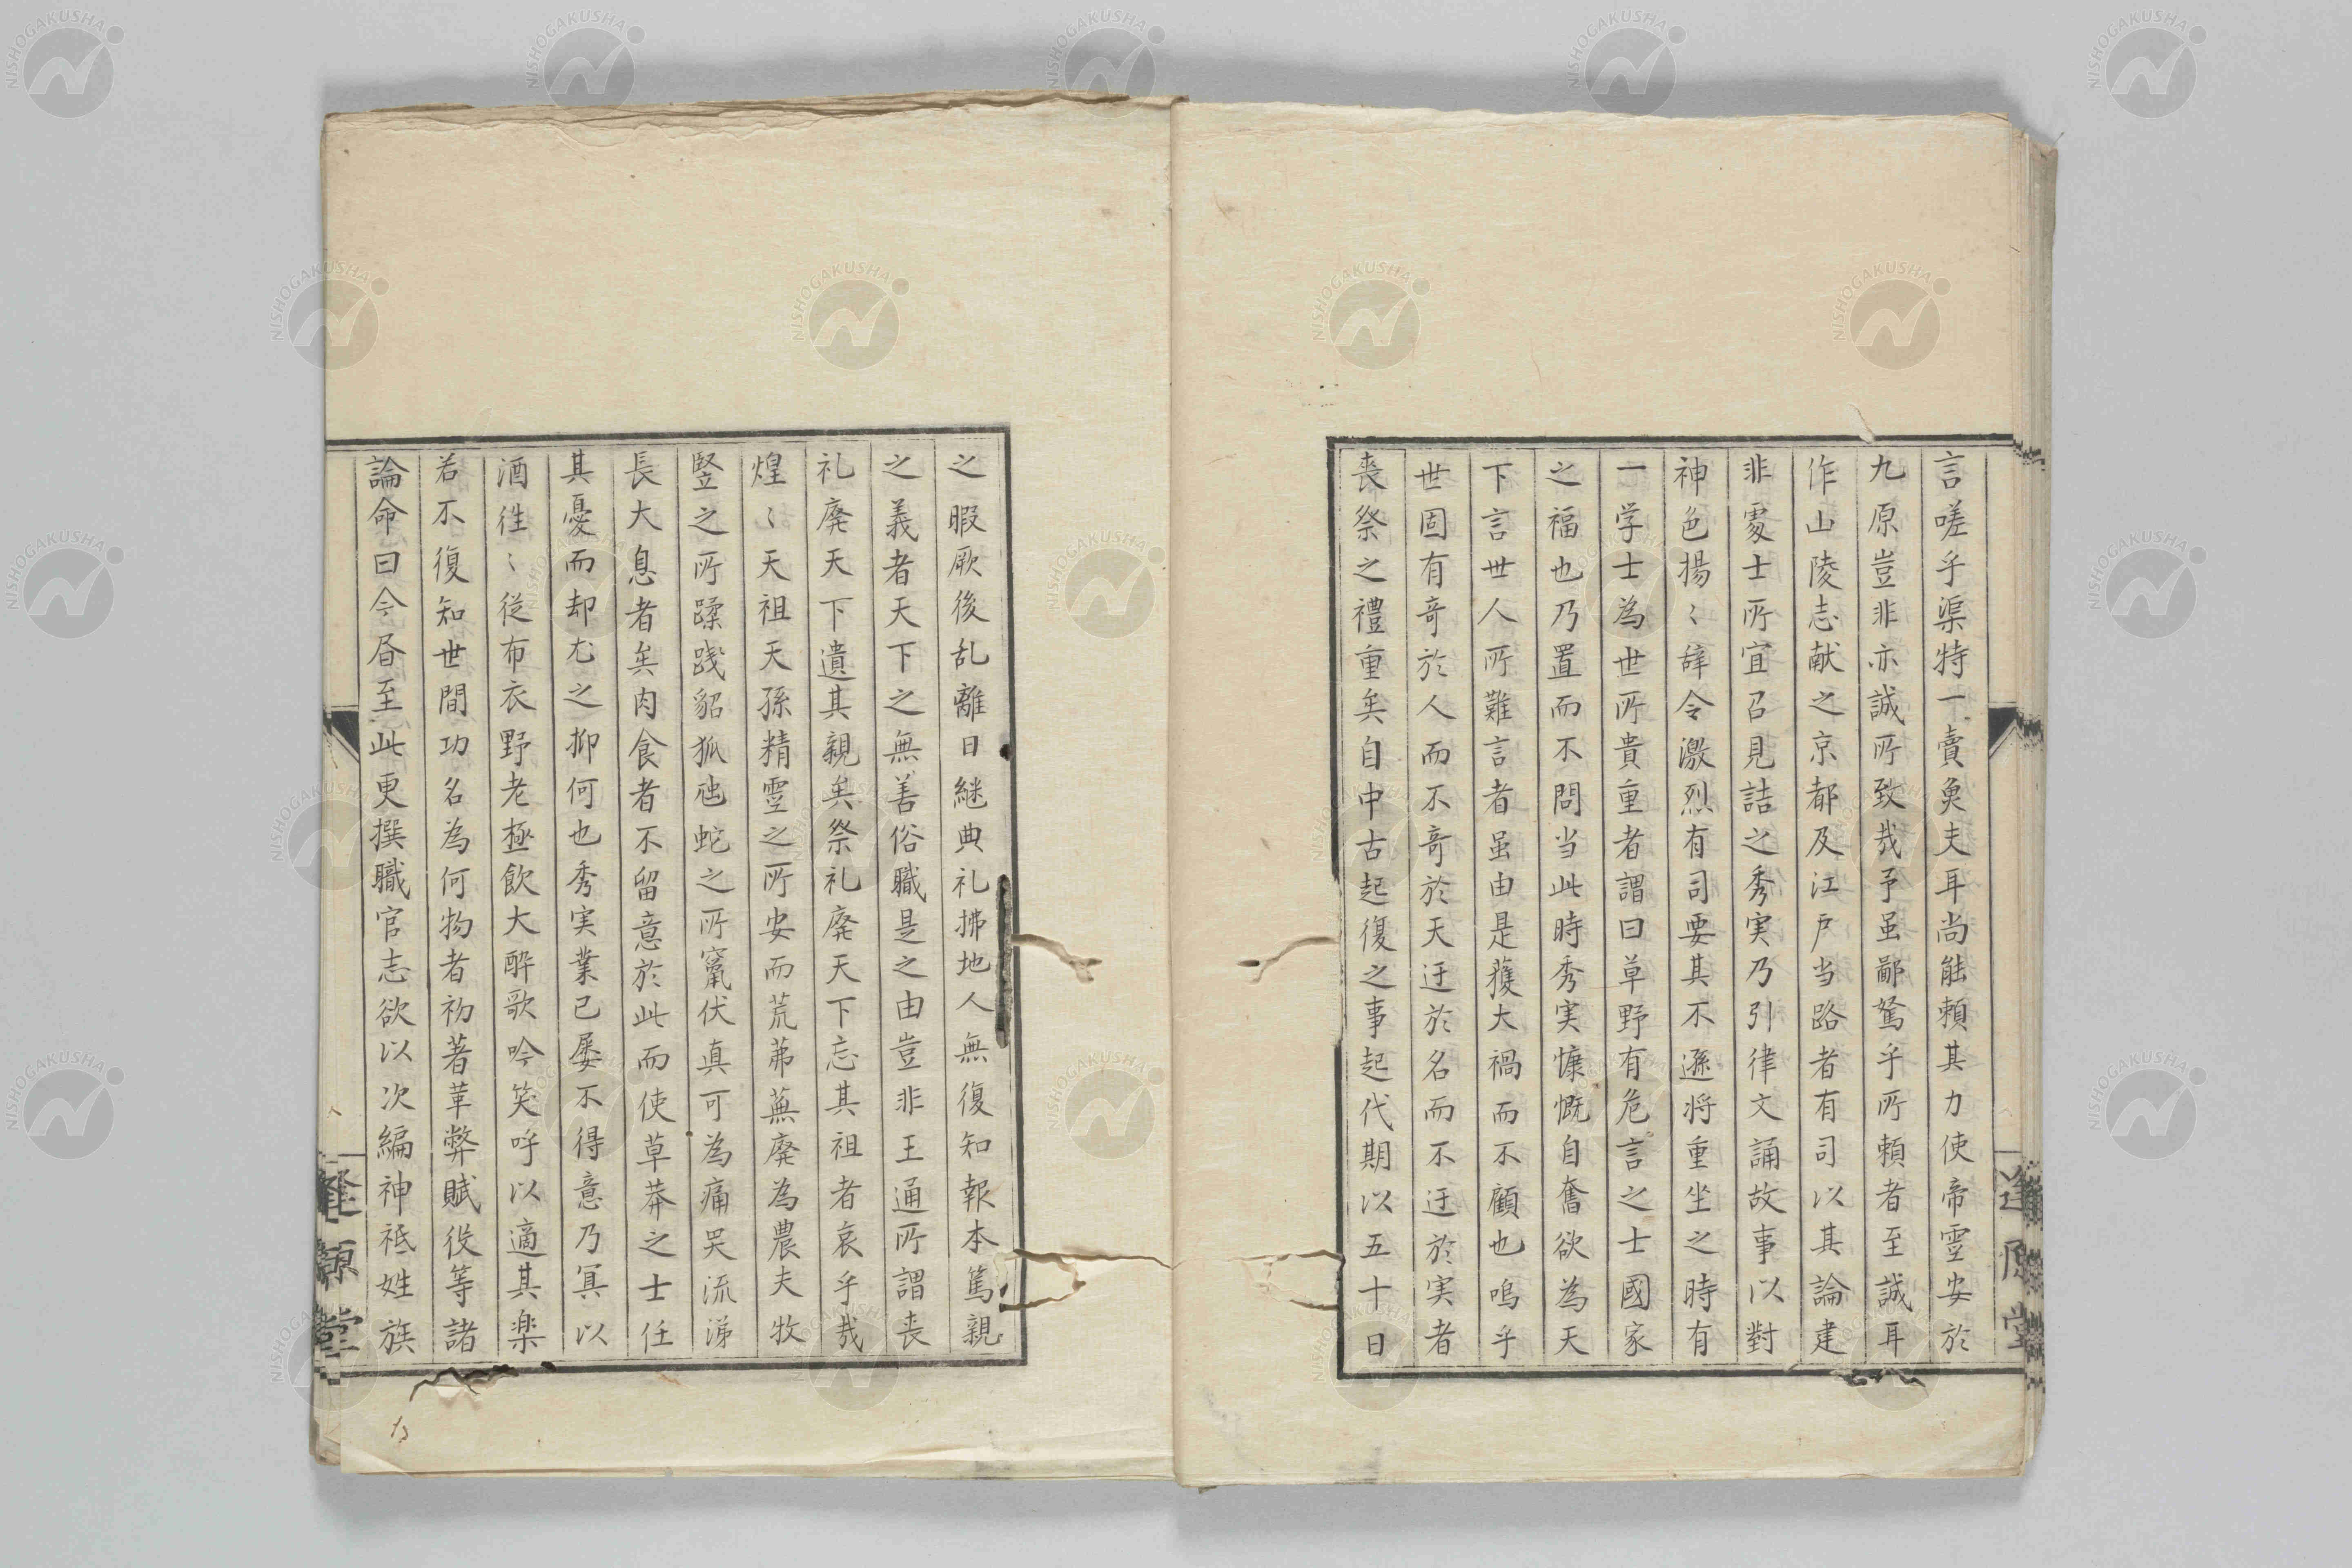 言嗟乎渠特一賣魚夫耳尚能頼其力使帝霊安於
九原豈非亦誠所致哉予虽鄙駑乎所頼者至誠耳
作山陵志献之京都及江戸当路者有司以其論建
非䖏士所宜召見詰之秀実乃引律文誦故事以對
神色揚〻辞令激烈有司要其不遜将重坐之時有
一学士為世所貴重者謂曰草野有危言之士國家
之福也乃置而不問当此時秀実慷慨自奮欲為天
下言世人所難言者虽由是蒦大禍而不顧也嗚乎
世固有奇於人而不奇於天迂於名而不迂於実者
丧祭之禮重矣自中古起復之事起代期以五十日
之暇厥後乱離日継典礼拂地人無復知報本篤親
之義者天下之無善俗職是之由豈非王通所謂丧
礼廃天下遺其親矣祭礼廃天下忘其祖者哀乎哉
煌〻天祖天孫精霊之所安而荒茀蕪廃為農夫牧
竪之所蹂踐貂狐虵蛇之所竄伏真可為痛哭流涕
長大息者矣肉食者不留意於此而使草莽之士任
其憂而却尤之抑何也秀実業已屡不得意乃冥以
酒徃〻従布衣野老極飲大酔歌吟笑呼以適其楽
若不復知世間功名為何物者初著革弊賦役等諸
論命曰今昏至此更撰職官志欲以次編神祇姓族
逢原堂
逢原堂
NISHOGAKUSHA